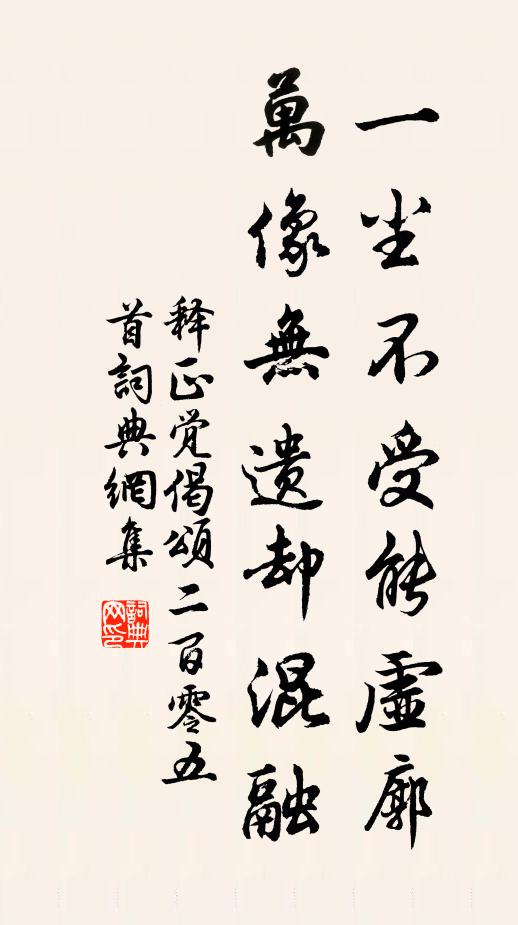 一尘不受能虚廓
萬像無遗却混融
释正觉偈頌二百零五
首詞典網集
詞典
网印